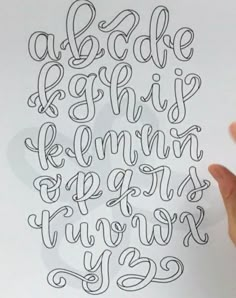 a b c d e
f g h i j
k l m n ñ
o p q r s
t u v w x
y z